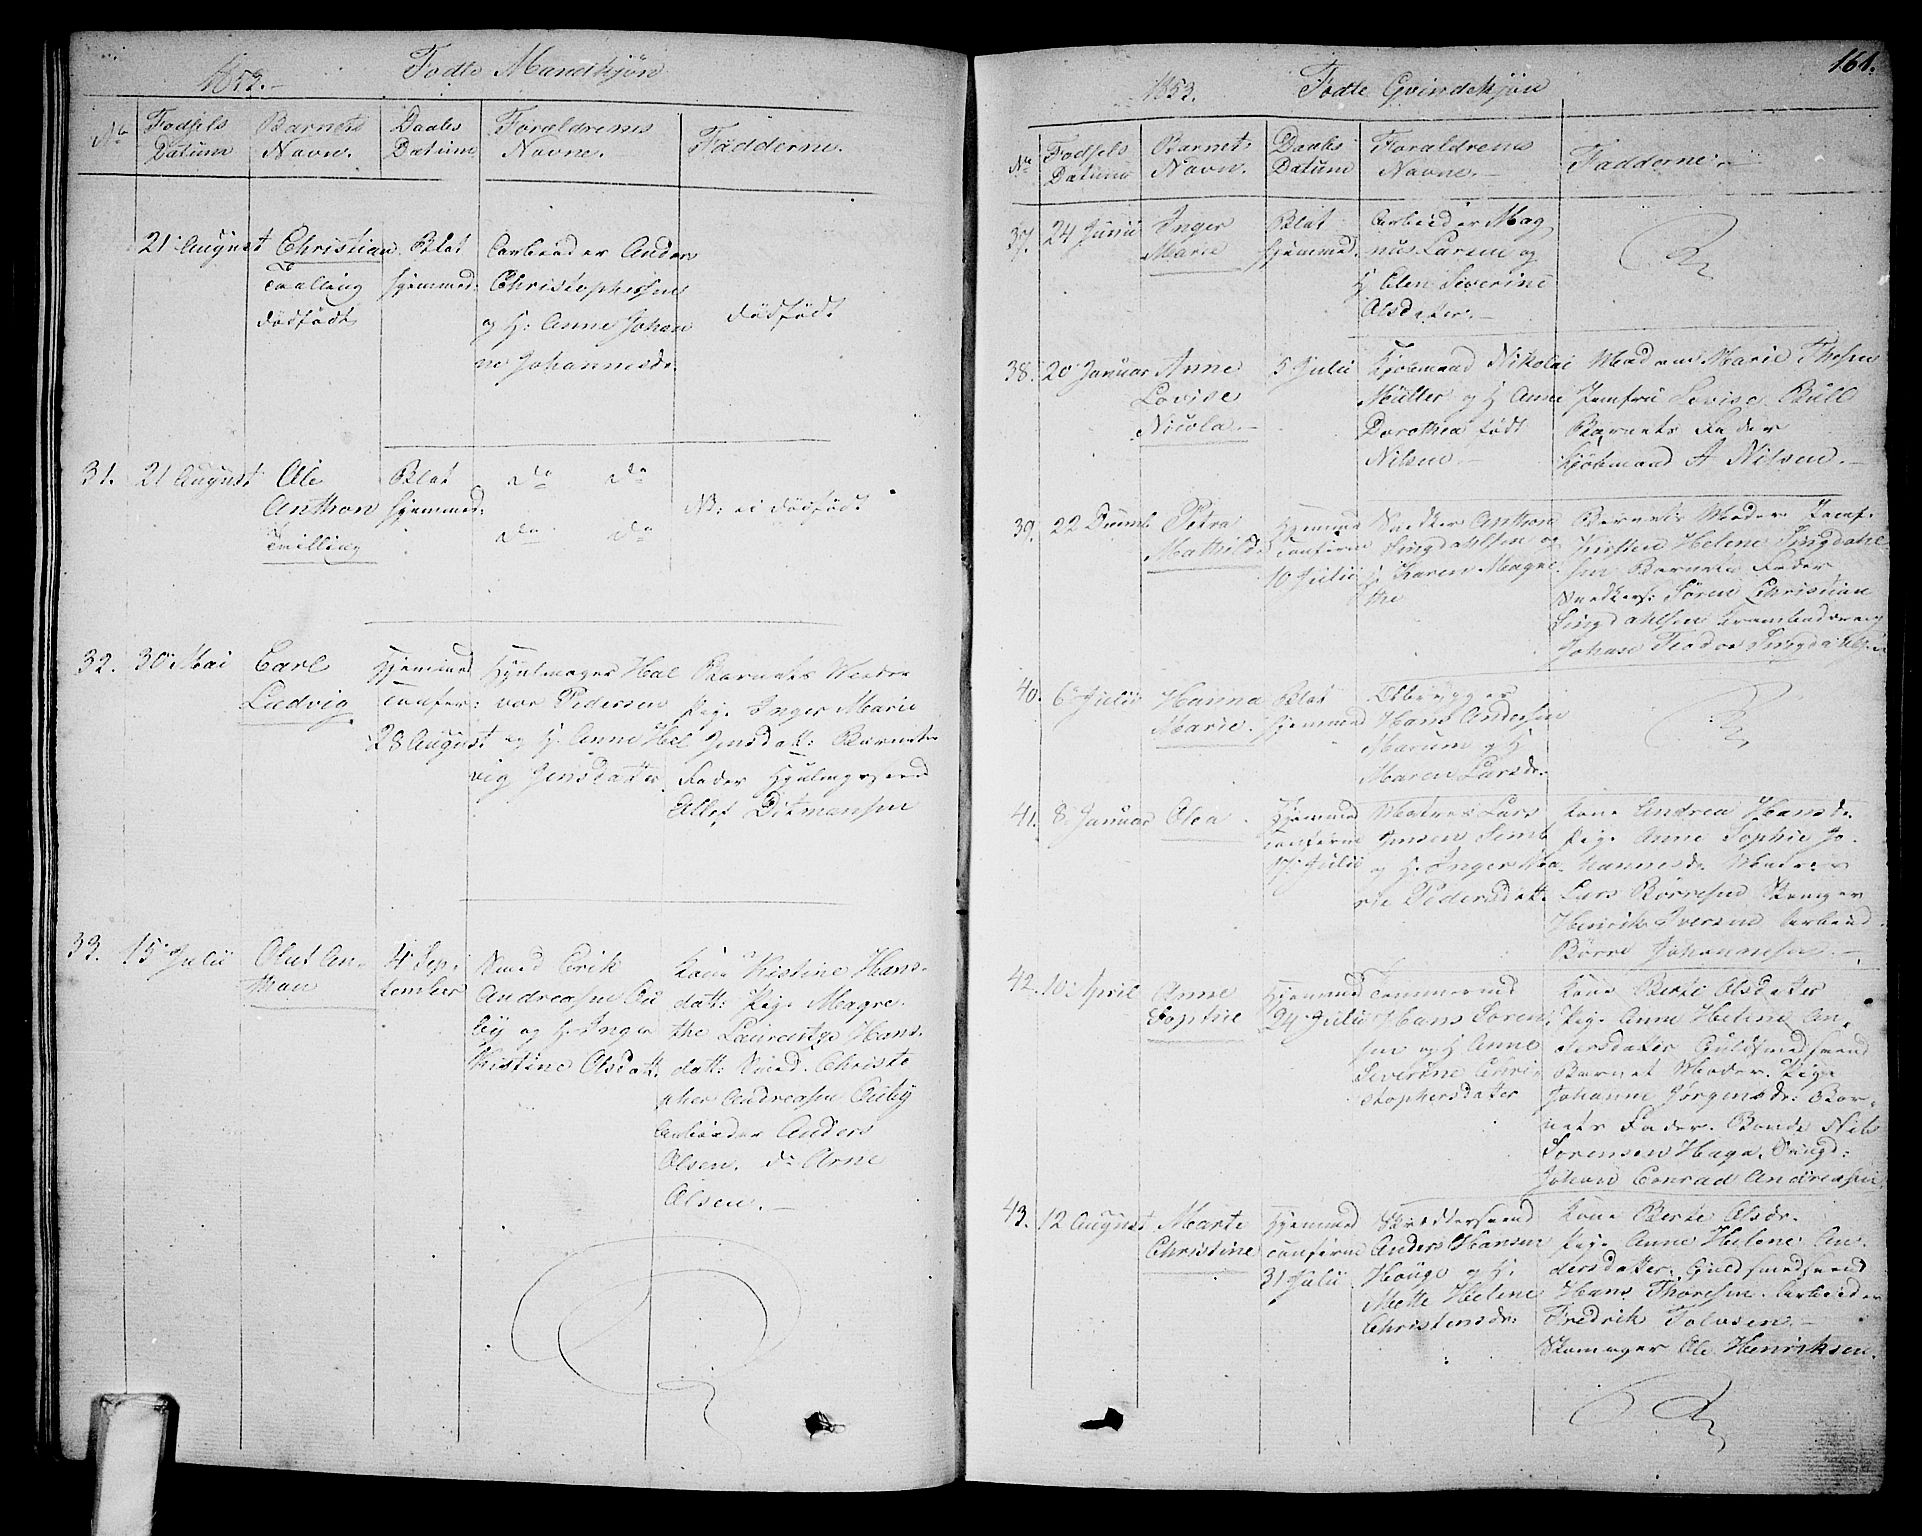 1853.
Fødte Mandkjøn
No
Fødsels Datum
Barnets Navn.
Daabs Datum
Forældrenes Navne.
Fadderne.
21 August
Christian
Tvilling
dødfødt
Blot
hjemmed:
Arbeider Anders
Christophersen
og H: Anne Johan
ne Johannesdr
dødfødt
31.
21 August
Ole
Anthon
Tvilling
Blot
hjemmed:
do do
do do
NB: ei dødfødt
32.
30 Mai
Carl
Ludvig
Hjemmed
confir:
28 August
Hjulmager Hal
vor Pedersen
og H. Anne Hel
vig Jensdatter
Barnets Moder
Pige Inger Marie
Jensdatt: Barnets
Fader Hjulmagersvend
Ellef Ditmansen
33.
15 Julii
Oluf An-
thon
4 Sep-
tember
Smed Erik
Andreasen Au
by og H. Inger
Kistine Olsdatt.
Kone Kistine Hans-
datt: Pige Magre-
the Lauentze Hans-
datt: Smed Christo
pher Andreasen Auby
Arbeider Anders
Olsen. do Arne
Olsen.
161.
1853.
Fødte Qvindekjøn
No
Fødsels Datum
Barnets Navn.
Daabs Datum
Forældrenes Navne.
Fadderne.
37.
24 Junii
Inger
Marie
Blot
hjemmed.
Arbeider Mag
nus Larsen og
H Elen Severine
Olsdatter.
38.
20 Januar
Anne
Lovise
Nicola.
5 Julii
Kjøbmand Nikolai
Müller og H Anne
Dorothea født
Nilsen.
Madame Marie Thesen
Jomfru Lovise Bull
Barnets Fader
Kjøbmand A Nilsen.
39.
22
Petra
Mathilde
Hjemmed
confirm
10 Julii
Snedker Anthon
Singdahlsen og
H. Karen Magre
the
Barnets Moder Jomf.
Kirsten Helene Singdahl
sen Barnets Fader
Snedkers: Søren Christian
Singdahlsen
Johan Teodor Singdahlsen
40.
6 Julii
Hanna
Marie.
Blot
hjemmed
Hans Andersen
Marum og H
Maren Larsdr.
41.
8 Januar
Olea.
Hjemmed
confirm
17 Julii
Matros Lars
Jensen
og H. Inger Ma
rie Pedersdatt.
Kone Andrea Hansdr.
Pige Anne Sophie Jo
hannesdr
Lars Børresen
Henrik Iversen Arbeid
Børre Johannesen.
42.
10 April
Anne
Sophie
Hjemmed
24 Julii
Tømmermd
Hans Søren
sen og H Anne
Severine Chri
stophersdatter
Kone Berte Olsdatter
Pige Anne Helene An-
dersdatter Guldsmedsvend
Barnets Moder. Pige
Johanne Jørgensdr: Bar-
nets Fader. Bonde Nils
Sørensen Haga.
Johan Conrad Andreasen
43.
12 August
Marte
Christine
Hjemmed
confirm
31 Julii
Skreddersvend
Anders Hansen
Houge og H.
Mette Helene
Christensdr:
Kone Berte Olsdr.
Pige Anne Helene An
dersdatter. Guldsmedsvend
Hans Thoresen Arbeider
Fredrik Tolvsen.
Skomager Ole Henriksen.